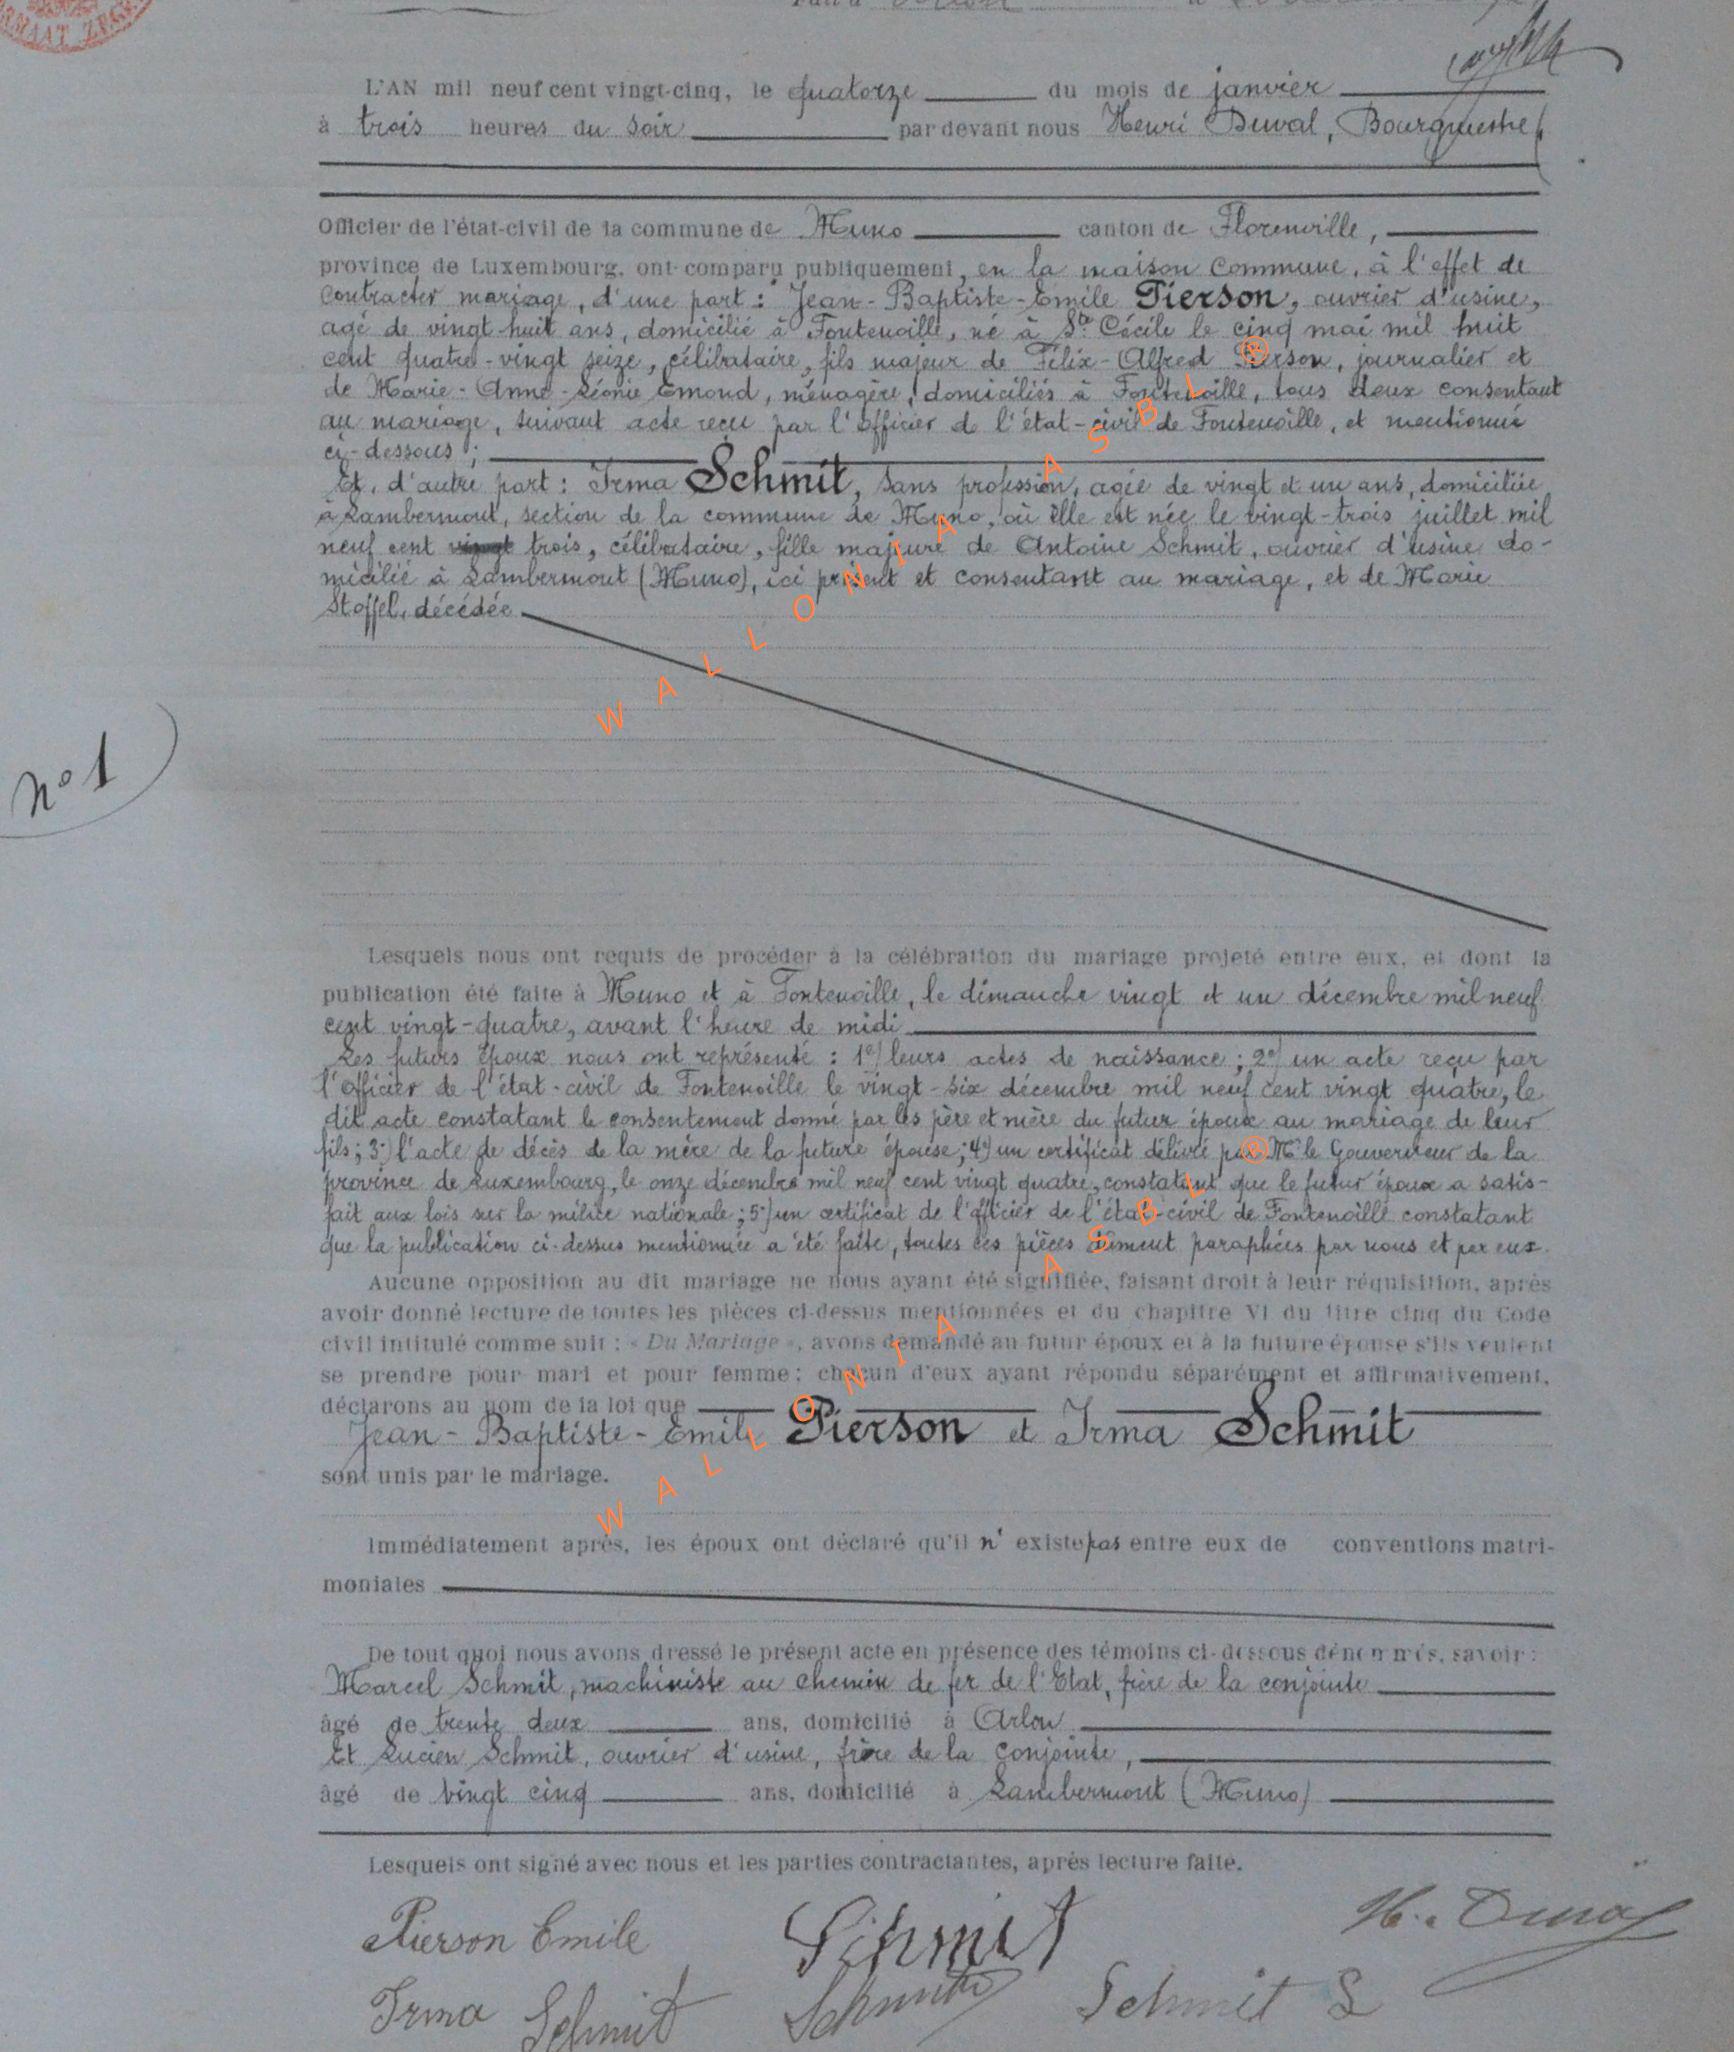 L'AN mil neuf cent vingt-cinq, le quatorze du mois de janvier
à trois heures du soir par devant nous Henri Duval, Bourgmestre
Officier de l'état-civil de la commune de Muno canton de Florenville,
province de Luxembourg, ont comparu publiquement, en la maison commune, à l'effet de
contracter mariage, d'une part : Jean-Baptiste-Emile Pierson, ouvrier d'usine,
agé de vingt huit ans, domicilié à Fontenoille, né à Ste Cécile le cinq mai mil huit
cent quatre-vingt seize, célibataire, fils majeur de Félix-Alfred Pierson, journalier et
de Marie-Anne-Léonie Emond, ménagère, domiciliés à Fontenoille, tous deux consentant
au mariage, suivant acte reçu par l'officier de l'état-civil de Fontenoille, et mentionné
ci-dessous ;
Et, d'autre part : Irma Schmit, sans profession, agée de vingt et un ans, domiciliée
à Lambermont, section de la commune de Muno, où elle est née le vingt-trois juillet mil
neuf cent trois, célibataire, fille majeure de Antoine Schmit, ouvrier d'usine do-
micilié à Lambermont (Muno), ici présent et consentant au mariage, et de Marie
Stoffel, décédée
WALLONIA ASBL ®
n° 1
Lesquels nous ont requis de procéder à la célébration du mariage projeté entre eux, et dont la
publication été faite à Muno et à Fontenoille, le dimanche vingt et un décembre mil neuf
cent vingt-quatre, avant l'heure de midi
Les futurs époux nous ont représenté : 1°) leurs actes de naissance ; 2°) un acte reçu par
l'officier de l'état-civil de Fontenoille le vingt-six décembre mil neuf cent vingt quatre, le
dit acte constatant le consentement donné par les père et mère du futur époux au mariage de leur
fils ; 3°) l'acte de décès de la mère de la future épouse ; 4°) un certificat délivré par Mr le Gouverneur de la
province de Luxembourg, le onze décembre mil neuf cent vingt quatre, constatant que le futur époux a satis-
fait aux lois sur la milice nationale ; 5°) un certificat de l'officier de l'état-civil de Fontenoille constatant
que la publication ci-dessus mentionnée a été faite, toutes ces pièces dûment paraphées par nous et par eux.
Aucune opposition au dit mariage ne nous ayant été signifiée, faisant droit à leur réquisition, après
avoir donné lecture de toutes les pièces ci-dessus mentionnées et du chapitre VI du titre cinq du Code
civil intitulé comme suit : « Du Mariage », avons demandé au futur époux et à la future épouse s'ils veulent
se prendre pour mari et pour femme ; chacun d'eux ayant répondu séparément et affirmativement,
déclarons au nom de la loi que
Jean-Baptiste-Emile Pierson et Irma Schmit
sont unis par le mariage.
WALLONIA ASBL ®
Immédiatement après, les époux ont déclaré qu'il n' existe pas entre eux de conventions matri-
moniales
De tout quoi nous avons dressé le présent acte en présence des témoins ci-dessous dénommés, savoir :
Marcel Schmit, machiniste au chemin de fer de l'Etat, frère de la conjointe
âgé de trente deux ans, domicilié à Arlon
Et Lucien Schmit, ouvrier d'usine, frère de la conjointe,
âgé de vingt cinq ans, domicilié à Lambermont (Muno)
Lesquels ont signé avec nous et les parties contractantes, après lecture faite.
Pierson Emile Schmit H. Duval
Irma Schmit Schmit Schmit L